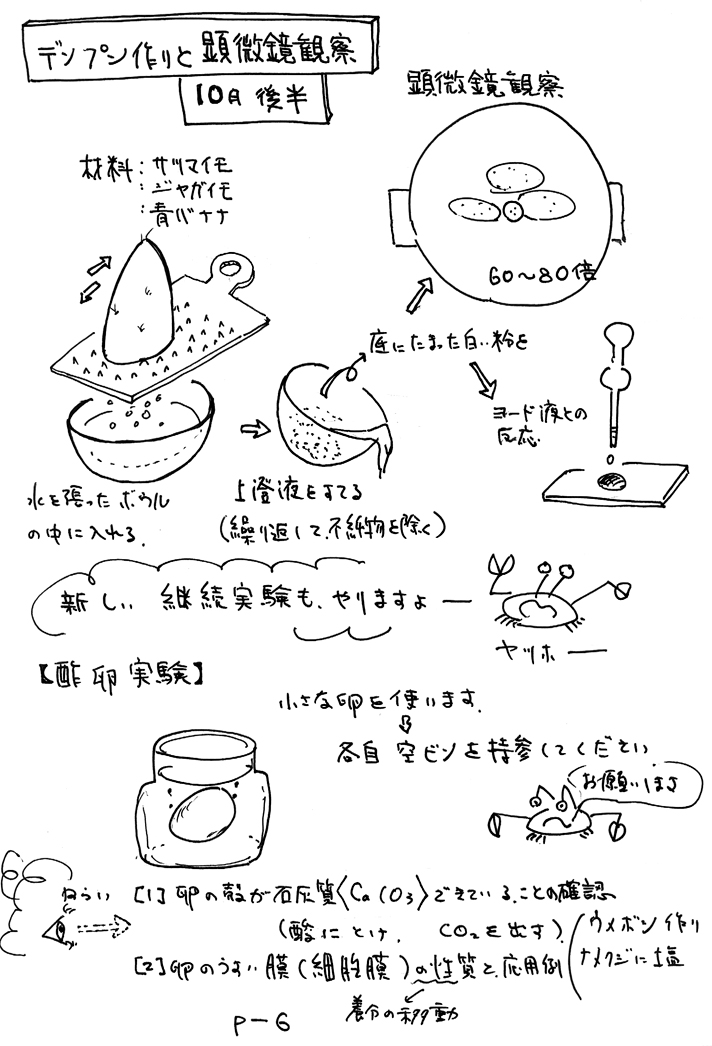 デンプン作りと顕微鏡観察
10月後半
材料:サツマイモ
:ジャガイモ
:青バナナ
顕微鏡観察
60〜80倍
底にたまった白い粉を
ヨード液との
反応
水を張ったボウル
の中に入れる.
上澄液をすてる
(繰り返して、不純物を除く)
新しい 継続実験も、やりますよ―
ヤッホ――
【酢卵実験】
小さな卵を使います.
⇩
各自 空ビンを持参してください.
お願いします
ねらい [1]卵の殻が石灰質〈CaCO3〉でできていることの確認
(酸にとけ、CO2を出す)
[2]卵のうすい膜(細胞膜)の性質と、応用例
ウメボシ作り
ナメクジに塩
養分の移動
P-6